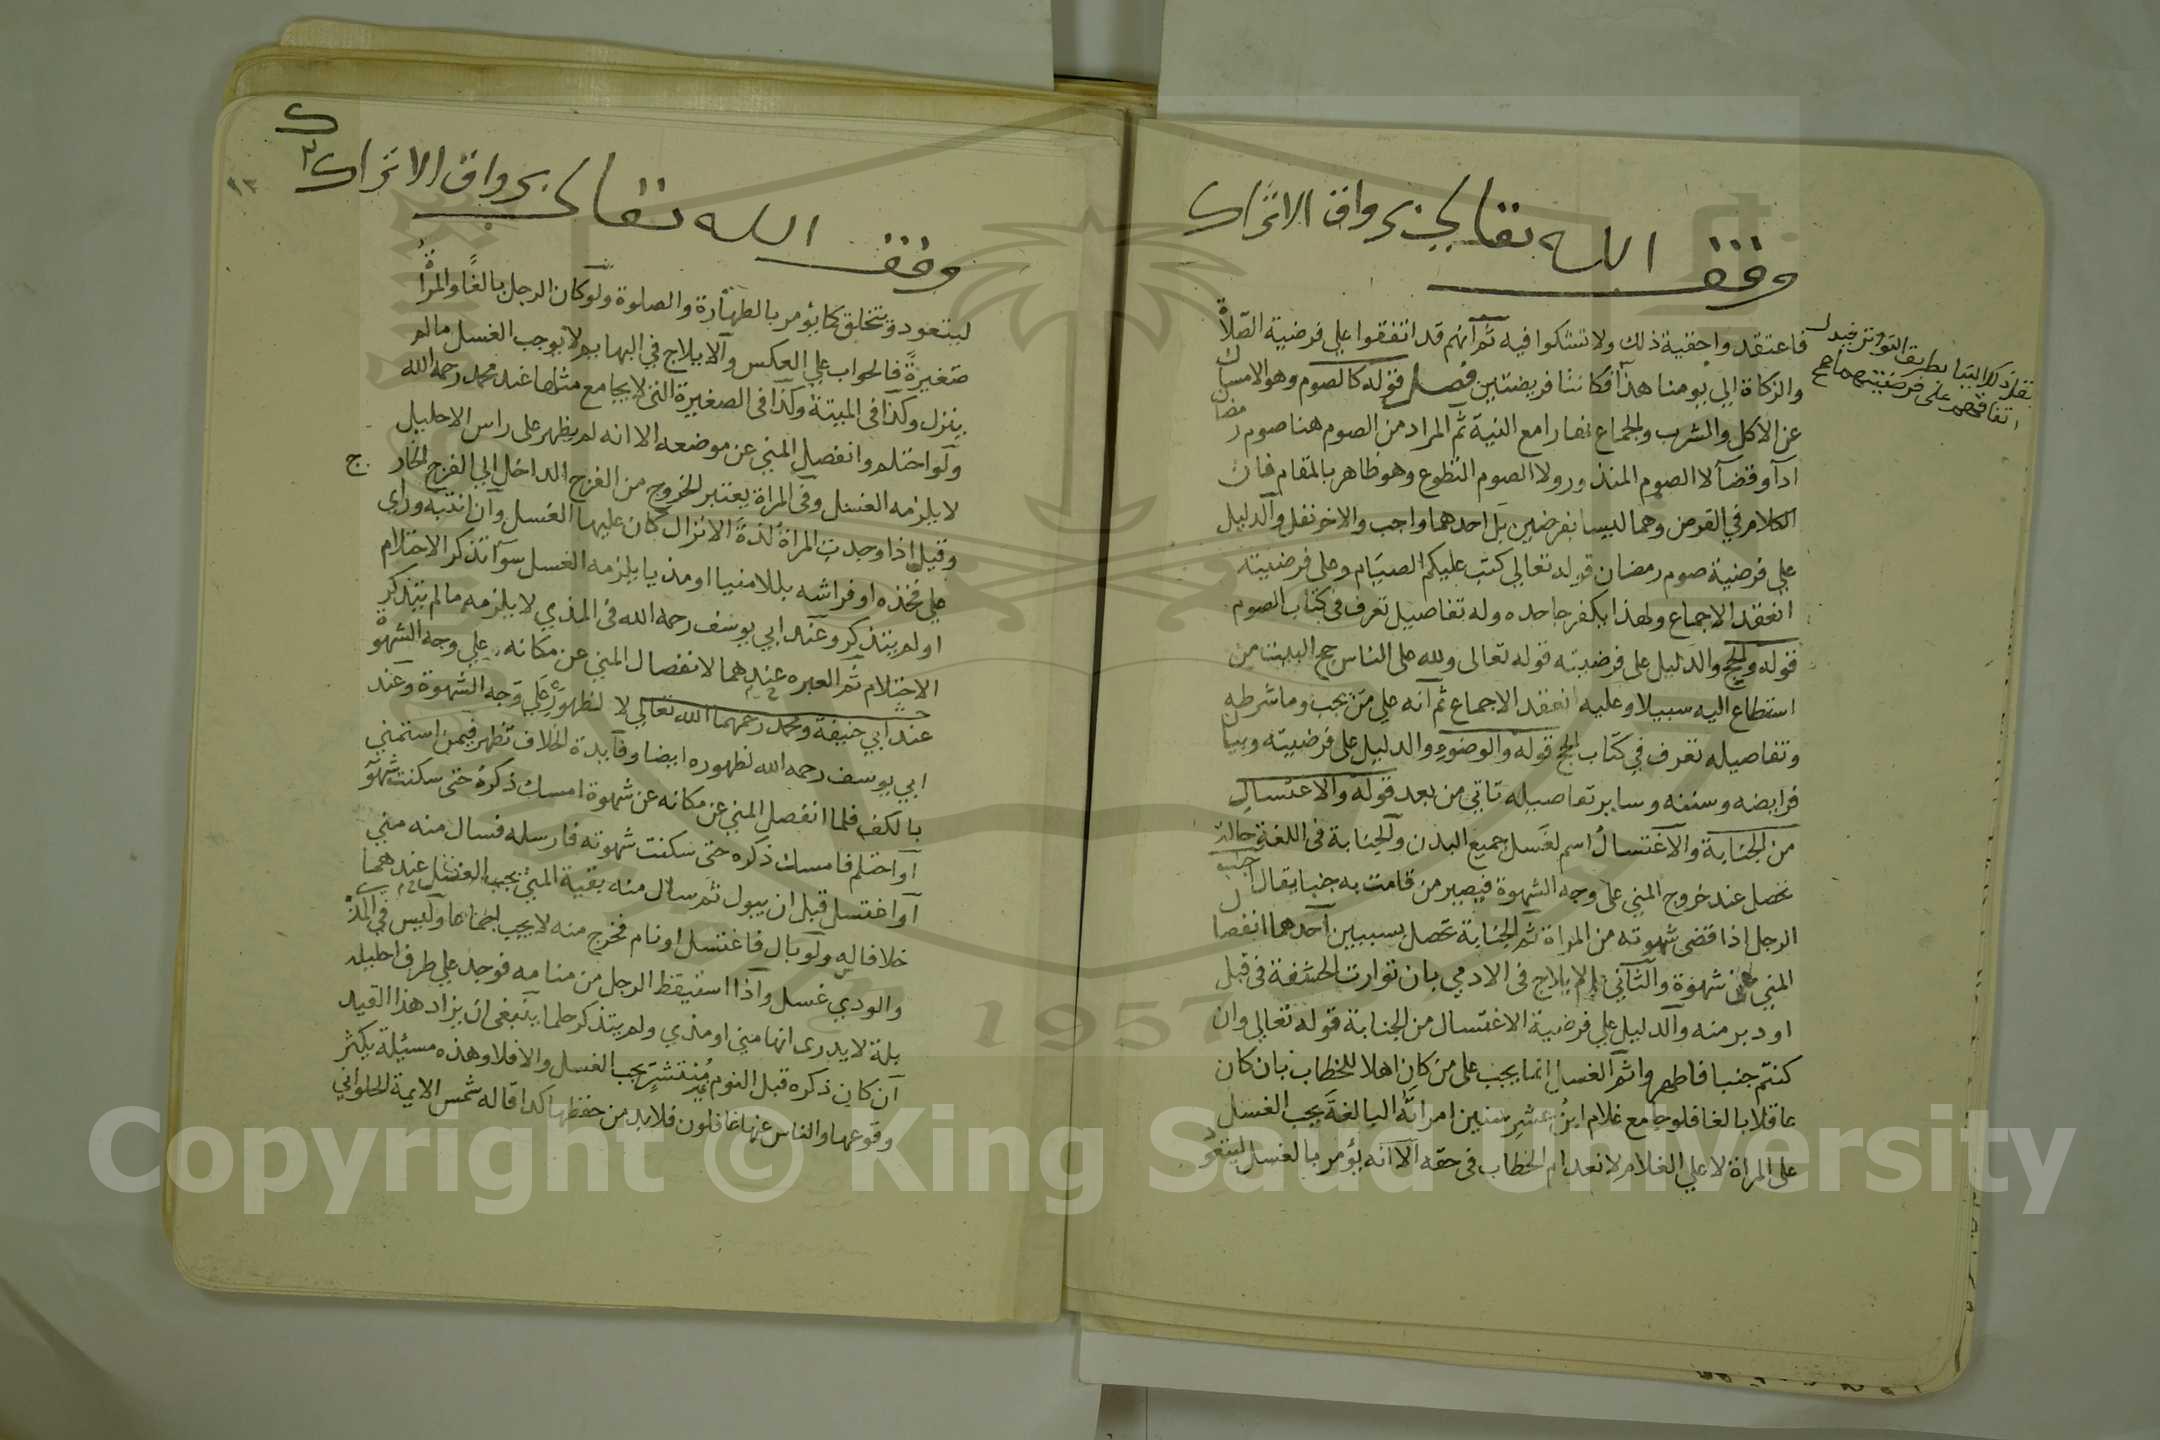 وقف الله تعالى برواق الاتراك
فاعتقدوا حقية ذلك ولا تشكوا فيه ثم انهم قد اتفقوا على فرضية الصلاة
والزكاة الى يومنا هذا فكانتا فريضتين فصل قوله كالصوم وهو الامساك
عن الاكل والشرب والجماع نهارا مع النية ثم المراد من الصوم هنا صوم رمضان
ادآ وقضآ لا الصوم المنذور ولا الصوم التطوع وهو ظاهر بالمقام فان
الكلام في الفرض وهما ليسا بفرضين بل احدهما واجب والاخر نفل والدليل
على فرضية صوم رمضان قوله تعالى كتب عليكم الصيام وعلى فرضيته
انعقد الاجماع ولهذا يكفر جاحده وله تفاصيل تعرف في كتاب الصوم
قوله والحج والدليل على فرضيته قوله تعالى ولله على الناس حج البيت من
استطاع اليه سبيلا وعليه انعقد الاجماع ثم انه على من يجب وما شرطه
وتفاصيله تعرف في كتاب الحج قوله والوضوء والدليل على فرضيته وبيان
فرايضه وسننه وساير تفاصيله تاتي من بعد قوله والاغتسال
من الجنابة والاغتسال اسم لغسل جميع البدن والجنابة في اللغة حالة
تحصل عند خروج المني على وجه الشهوة فيصير من قامت به جنبا يقال جنب
الرجل اذا قضى شهوته من المراة ثم الجنابة تحصل بسببين احدهما انفصال
المني عن شهوة والثاني الايلاج في الادمي بان توارت الحشفة في قبل
او دبر منه والدليل على فرضية الاغتسال من الجنابة قوله تعالى وان
كنتم جنبا فاطهروا ثم الغسل انما يجب على من كان اهلا للخطاب بان كان
عاقلا بالغا فلو جامع غلام ابن عشر سنين امراته البالغة يجب الغسل
على المراة لا على الغلام لانعدام الخطاب في حقه الا انه يؤمر بالغسل ليتعود
اتفاقهم على فرضيتهما
وقف الله تعالى برواق الاتراك
ليتعود ويتخلق كما يؤمر بالطهارة والصلوة ولو كان الرجل بالغا والمراة
صغيرة فالجواب على العكس والايلاج في البهايم لا يوجب الغسل مالم
ينزل وكذا في الميتة وكذا في الصغيرة التي لا يجامع مثلها عند محمد رحمه الله
ولو احتلم وانفصل المني عن موضعه الا انه لم يظهر على راس الاحليل
لا يلزمه الغسل وفي المراة يعتبر الخروج من الفرج الداخل الى الفرج الخارج
وقيل اذا وجدت المراة لذة الانزال كان عليها الغسل وان انتبه وراى
على فخذه او فراشه بللا منيا او مذيا يلزمه الغسل سوآ تذكر الاحتلام
او لم يتذكر وعند ابي يوسف رحمه الله في المذي لا يلزمه مالم يتذكر
الاحتلام ثم العبره عندهما لانفصال المني عن مكانه على وجه الشهوة
عند ابي حنيفة ومحمد رحمهما الله تعالى لا لظهوره على وجه الشهوة وعند
ابي يوسف رحمه الله لظهوره ايضا وفايدة الخلاف تظهر فيمن استمنى
بالكف فلما انفصل المني عن مكانه عن شهوة امسك ذكره حتى سكنت شهوته
او احتلم فامسك ذكره حتى سكنت شهوته فارسله فسال منه مني
او اغتسل قبل ان يبول ثم سال منه بقية المني يجب الغسل عندهما
خلافا له ولو بال فاغتسل او نام فخرج منه لا يجب اجماعا وليس في المذي
والودي غسل واذا استيقظ الرجل من منامه فوجد على طرف احليله
بلة لا يدرى انها مني او مذي ولم يتذكر حلما ينبغى ان يزاد هذا القيد
ان كان ذكره قبل النوم غير منتشر يجب الغسل والا فلا وهذه مسئلة يكثر
وقوعها والناس عنها غافلون فلابد من حفظها كذا قاله شمس الايمة الحلوانى
1957
Copyright © King Saud University